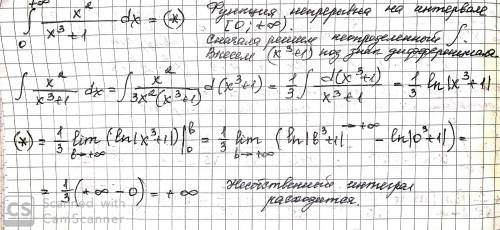 ∫₀^{+∞} x²/(x³+1) dx = (*) Функция непрерывна на интервале
[0; +∞).
Сначала решим неопределенный ∫.
Внесем (x³+1) под знак дифференциала
∫ x²/(x³+1) dx = ∫ x²/(3x²(x³+1)) d(x³+1) = 1/3 ∫ d(x³+1)/(x³+1) = 1/3 ln|x³+1|
(*) = 1/3 lim_{b→+∞} (ln|x³+1|)|₀^b = 1/3 lim_{b→+∞} (ln|b³+1| →+∞ − ln|0³+1|) =
= 1/3 (+∞ − 0) = +∞ Несобственный интеграл
расходится.
CS Scanned with
CamScanner